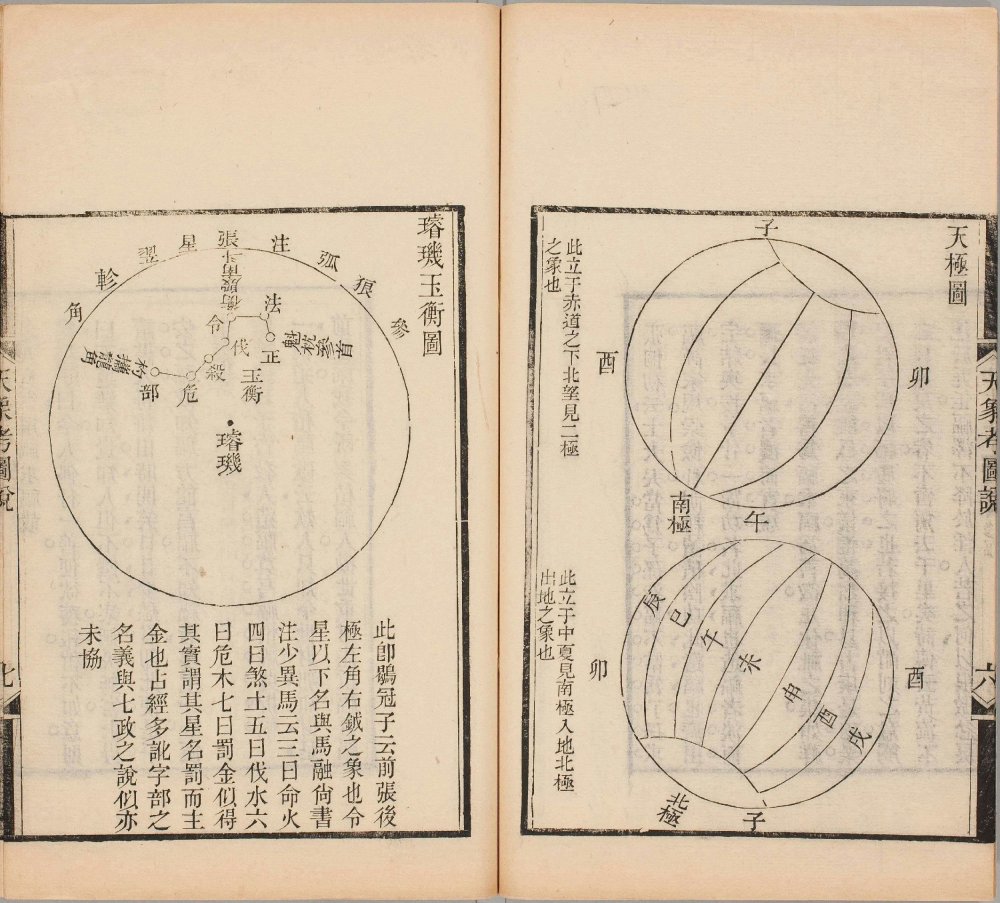 天極圖
子
卯
酉
午
南極
此立于赤道之下北望見二極
之象也
辰
巳
午
未
申
酉
戌
卯
酉
北極
子
此立于中夏見南極入地北極
出地之象也
天象考圖說
六
璿璣玉衡圖
參
狼
弧
注
張
星
軫
角
衡殷南斗
魁枕參首
杓攜龍角
正
法
令
伐
殺
危
部
玉衡
璿璣
此卽鶡冠子云前張後
極左角右鉞之象也令
星以下名與馬融尙書
注少異馬云三曰命火
四曰煞土五曰伐水六
曰危木七曰罰金似得
其實謂其星名罰而主
金也占經多訛字部之
名義與七政之說似亦
未協
天象考圖說
七